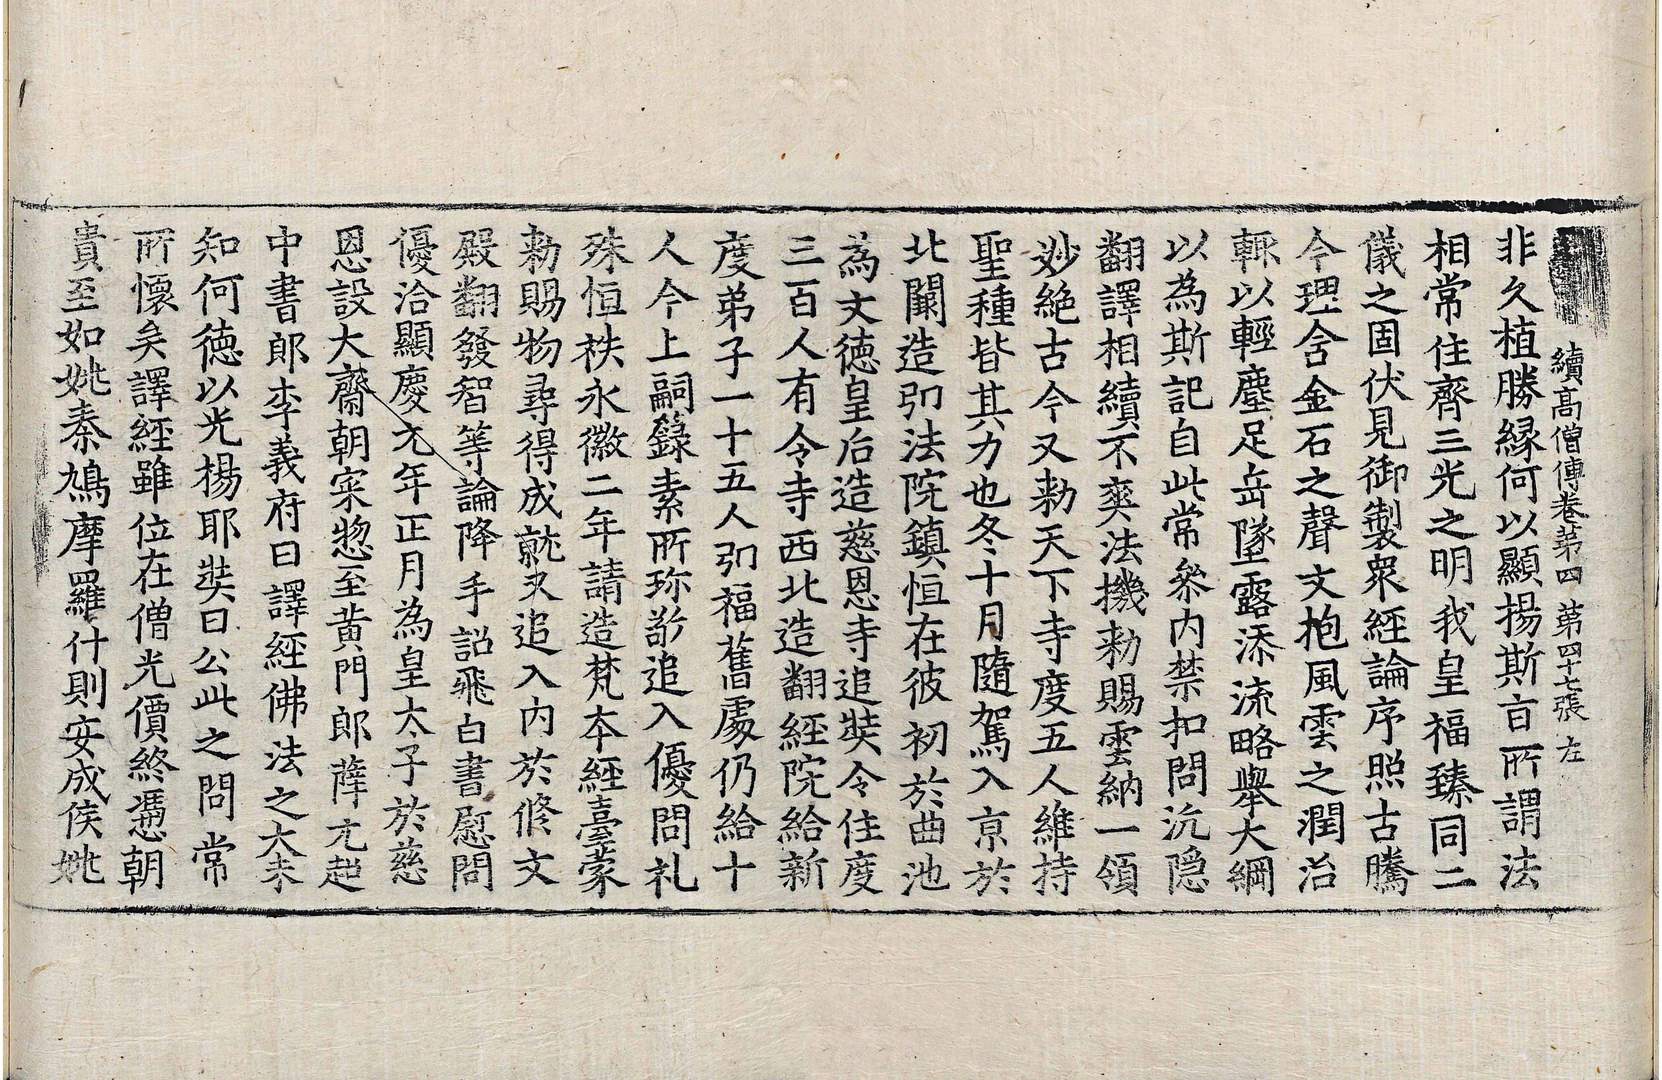 續高僧傳卷苐四 第四十七張 左
非久植勝縁何以顯揚斯㫖所謂法
相常住齊三光之明我皇福臻同二
儀之固伏見御製衆經論序照古騰
今理含金石之聲文抱風雲之潤治
輙以輕塵足岳墜露添流略舉大綱
以為斯記自此常叅内禁扣問沉隠
翻譯相續不爽法機勑賜雲納一領
妙絶古今又勑天下寺度五人維持
聖種皆其力也冬十月隨駕入京於
北闕造弘法院鎮恒在彼初於曲池
為文徳皇后造慈恩寺追奘令住度
三百人有令寺西北造翻經院給新
度弟子一十五人弘福舊處仍給十
人今上嗣籙素所珎敬追入優問礼
殊恒秩永徽二年請造梵夲經臺蒙
勑賜物尋得成就又追入内於脩文
殿翻發智等論降手詔飛白書慰問
優洽顯慶元年正月為皇太子於慈
恩設大齋朝寀惣至黄門郎薛元超
中書郎李義府曰譯經佛法之大未
知何徳以光楊耶奘曰公此之問常
所懷矣譯經雖位在僧光價終憑朝
貴至如姚秦鳩摩羅什則安成侯姚